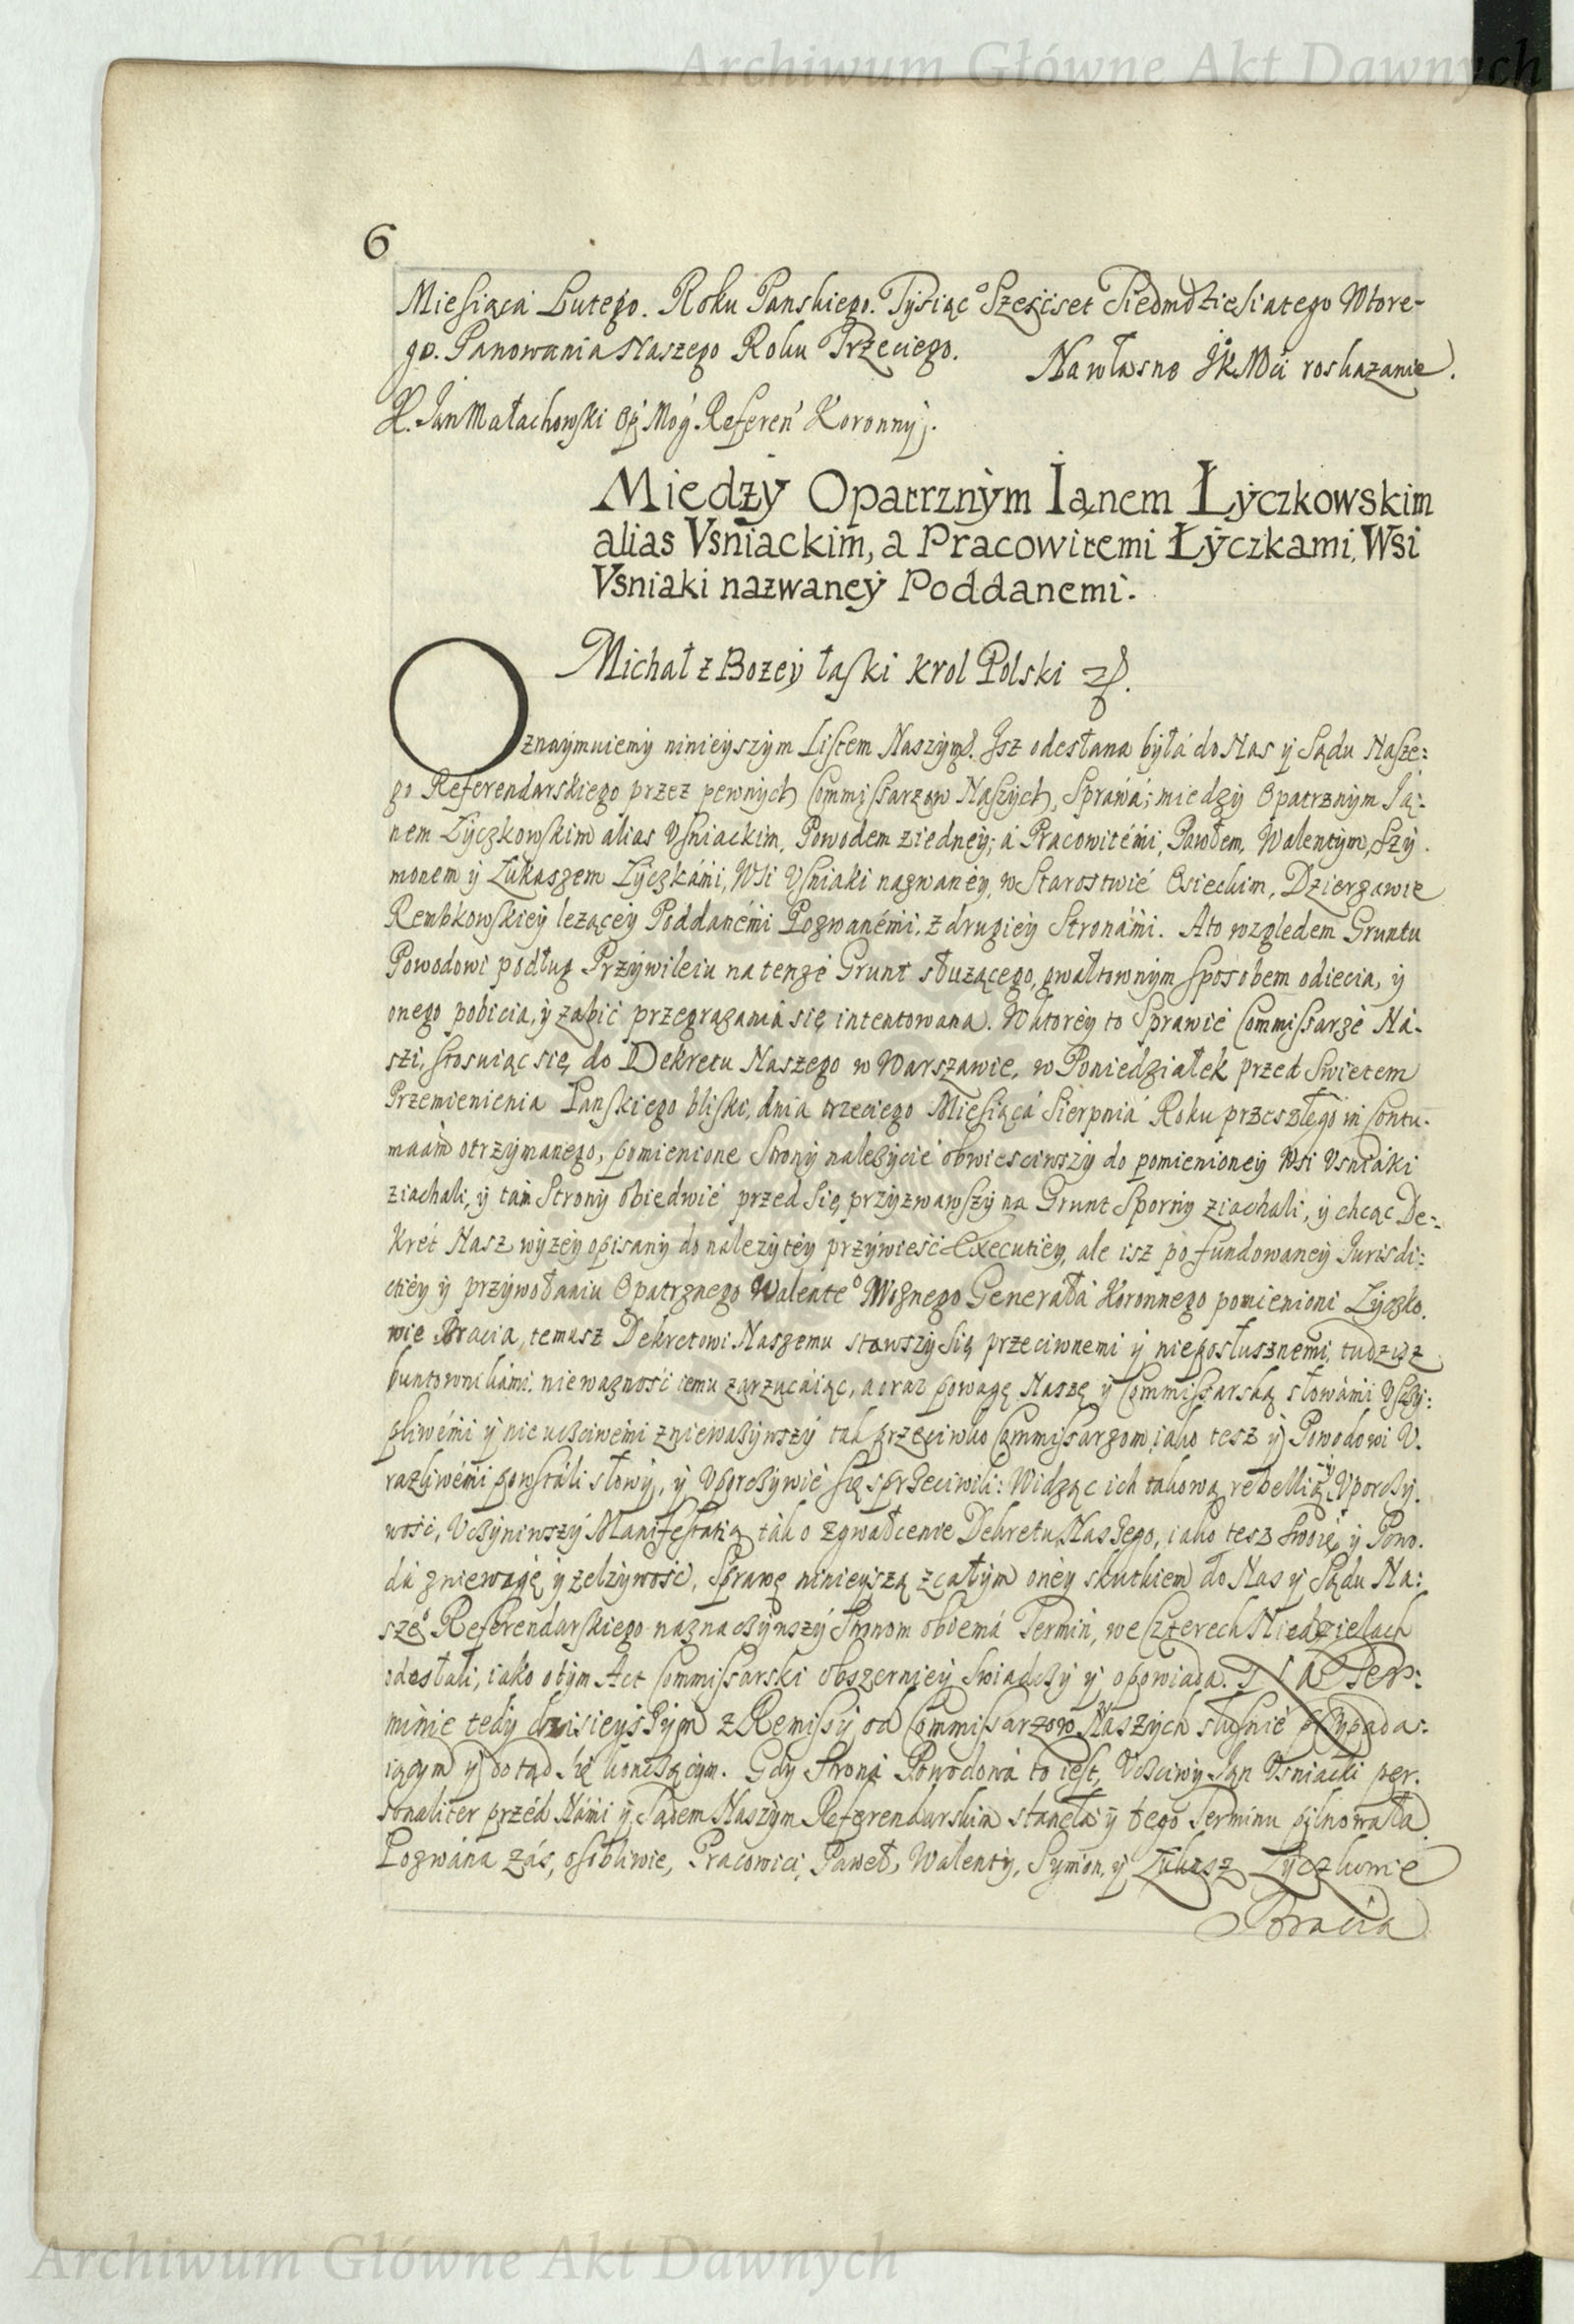 Archiwum Główne Akt Dawnych
6
Miesiąca Lutego. Roku Panskiego. Tysiąc° Sześcset Siedmdziesiatego Wtore-
go. Panowania Naszego Roku Trzeciego.
Na własne JKMci roskazanie.
X. Jan Małachowski Op Mog. Referen Koronny.
Między Opatrznym Ianem Łyczkowskim
alias Vsniackim, a Pracowitemi Łyczkami, Wsi
Vsniaki nazwaney Poddanemi.
Michał z Bozey łaski Krol Polski
Oznaymuiemy ninieyszym Listem Naszym. Isz odesłana była do Nas y Sądu Nasze:
go Referendarskiego przez pewnych Commissarzow Naszych, Sprawa; miedzy Opatrznym Ia:
nem Łyczkowskim alias Vsniackim, Powodem z iedney; a Pracowitemi, Pawłem, Walentym, Szy
monem y Łukaszem Łyczkami, Wsi Vsniaki nazwaney, w Starostwie Osieckim, Dzierzawie
Rembkowskiey lezącey Poddanemi Pozwanemi, z drugiey Stronami. A to względem Gruntu
Powodowi podług Przywileiu na tenze Grunt słuzącego, gwałtownym sposobem odiecia, y
onego pobicia, y zabić przegrazania się intentowana. W ktorey to Sprawie Commissarze Na-
szi, stosuiąc się do Dekretu Naszego w Warszawie, w Poniedziałek przed Swietem
Przemienienia Panskiego bliski, dnia trzeciego Miesiąca Sierpnia Roku przeszłego in Contu-
maciam otrzymanego, pomienione Strony nalezycie obwiesciwszy do pomienioney Wsi Vsniaki
ziachali, y tam Strony obiedwie przed się przyzwawszy na Grunt Sporny ziachali, y chcąc De-
kret Nasz wyzey opisany do nalezytey przywiesć Executiey, ale isz po fundowaney Iurisdi:
ctiey y przywołaniu Opatrznego Walente° Woznego Generała Koronnego pomienioni Łyczko
wie Bracia, temusz Dekretowi Naszemu stawszy się przeciwnemi y nieposłusznemi, tudziesz
buntownikami, niewaznosć iemu zarzucaiąc, a oraz powagę Naszę y Commissarską słowami Vszczy:
pliwemi y nieuczciwemi zniewazywszy tak przeciwko Commissarzom iako tesz y Powodowi V.
razliwemi powstali słowy, y Vporczywie się sprzeciwili: Widząc ich takową rebellią y Vporczy.
wosć, Vczyniwszy Manifestatią tak o zgwałcenie Dekretu Naszego, iako tesz swoię y Powo.
da zniewagę y zelzywosć, Sprawę ninieyszą z całym oney skutkiem do Nas y Sądu Na:
sze° Referendarskiego naznaczywszy Stronom obiema Termin, we czterech Niedzielach
odesłali, iako o tym Act Commissarski obszerniey swiadczy y opowiada. Na Ter:
minie tedy dzisieyszym z Remissy od Commissarzow Naszych słusnie przypada:
iącym y dotąd się konczącym. Gdy Strona Powodowa to iest, Vczciwy Jan Vsniacki per.
sonaliter przed Nami y Sądem Naszym Referendarskim stanęła y tego Terminu pilnowała
Pozwana zas, osobliwie, Pracowici, Paweł, Walenty, Symon, y Łukasz Łyczkowie
Bracia
Archiwum Główne Akt Dawnych